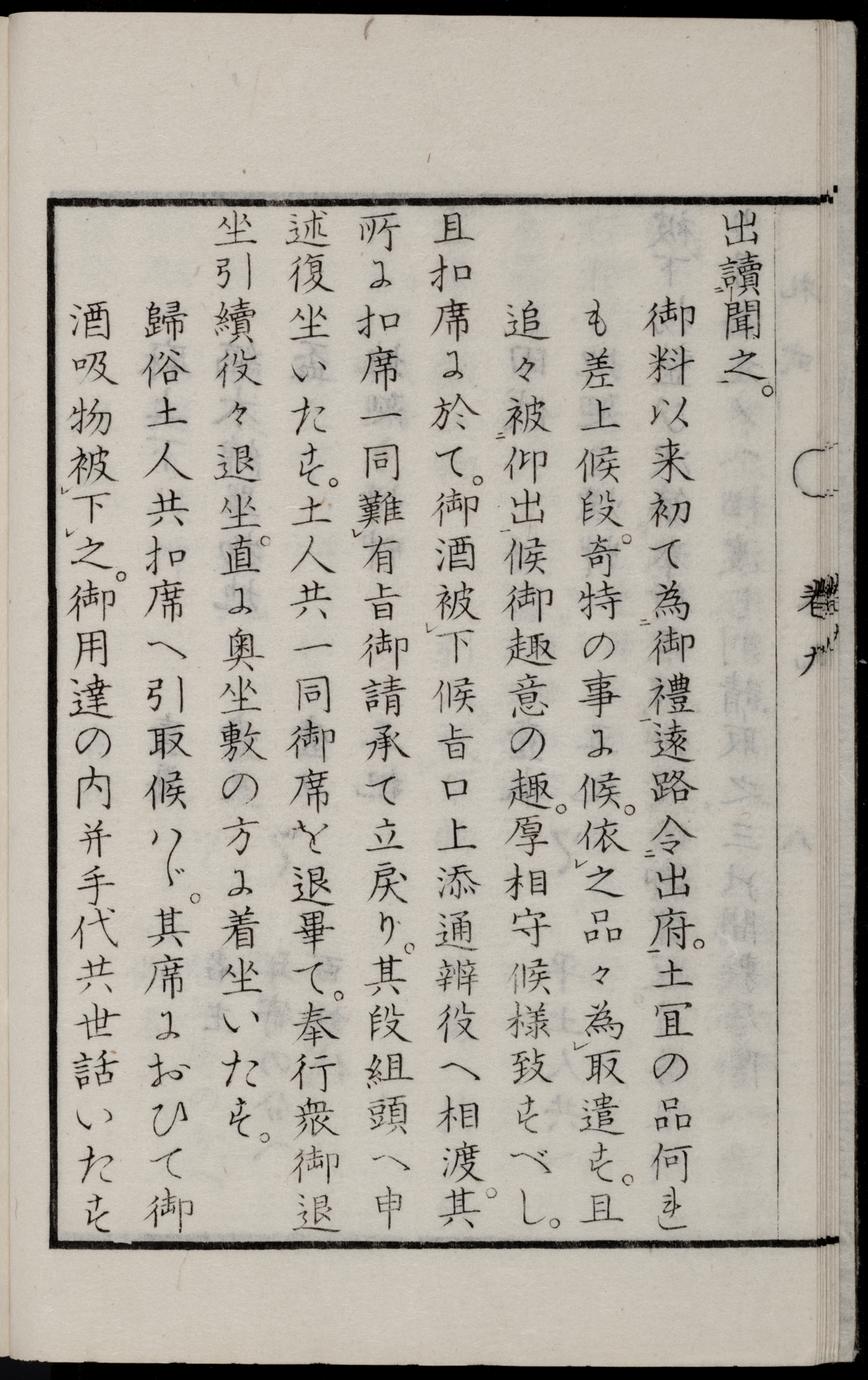 出讀聞之。
御料以来初て為御禮遠路令出府。土冝の品何れ
も差上候段。奇特の事に候。依之品々為取遣す。且
追々被仰出候御趣意の趣。厚相守候様致すべし。
且扣席に於て。御酒被下候旨口上添通辨役へ相渡。其
所に扣席一同難有旨御請承て立戻り。其段組頭へ申
述復坐いたす。土人共一同御席を退畢て。奉行衆御退
坐引續役々退坐。直に奥坐敷の方に着坐いたす。
歸俗土人共扣席へ引取候ハヾ。其席におひて御
酒吸物被下之。御用達の内并手代共世話いたす
巻九